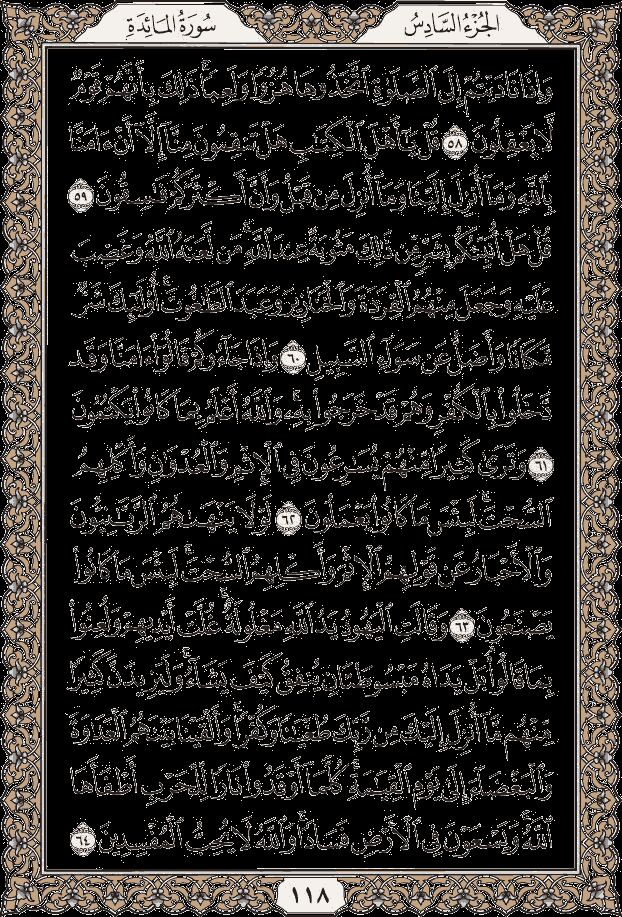 الجُزْءُ السَّادِسُ
سُورَةُ المَائِدَةِ
وَإِذَا نَادَيْتُمْ إِلَى ٱلصَّلَوٰةِ ٱتَّخَذُوهَا هُزُوًا وَلَعِبًا ۚ ذَٰلِكَ بِأَنَّهُمْ قَوْمٌ
لَّا يَعْقِلُونَ ٥٨ قُلْ يَٰٓأَهْلَ ٱلْكِتَٰبِ هَلْ تَنقِمُونَ مِنَّآ إِلَّآ أَنْ ءَامَنَّا
بِٱللَّهِ وَمَآ أُنزِلَ إِلَيْنَا وَمَآ أُنزِلَ مِن قَبْلُ وَأَنَّ أَكْثَرَكُمْ فَٰسِقُونَ ٥٩
قُلْ هَلْ أُنَبِّئُكُم بِشَرٍّ مِّن ذَٰلِكَ مَثُوبَةً عِندَ ٱللَّهِ ۚ مَن لَّعَنَهُ ٱللَّهُ وَغَضِبَ
عَلَيْهِ وَجَعَلَ مِنْهُمُ ٱلْقِرَدَةَ وَٱلْخَنَازِيرَ وَعَبَدَ ٱلطَّٰغُوتَ ۚ أُو۟لَٰٓئِكَ شَرٌّ
مَّكَانًا وَأَضَلُّ عَن سَوَآءِ ٱلسَّبِيلِ ٦٠ وَإِذَا جَآءُوكُمْ قَالُوٓا۟ ءَامَنَّا وَقَد
دَّخَلُوا۟ بِٱلْكُفْرِ وَهُمْ قَدْ خَرَجُوا۟ بِهِۦ ۚ وَٱللَّهُ أَعْلَمُ بِمَا كَانُوا۟ يَكْتُمُونَ
٦١ وَتَرَىٰ كَثِيرًا مِّنْهُمْ يُسَٰرِعُونَ فِى ٱلْإِثْمِ وَٱلْعُدْوَٰنِ وَأَكْلِهِمُ
ٱلسُّحْتَ ۚ لَبِئْسَ مَا كَانُوا۟ يَعْمَلُونَ ٦٢ لَوْلَا يَنْهَىٰهُمُ ٱلرَّبَّٰنِيُّونَ
وَٱلْأَحْبَارُ عَن قَوْلِهِمُ ٱلْإِثْمَ وَأَكْلِهِمُ ٱلسُّحْتَ ۚ لَبِئْسَ مَا كَانُوا۟
يَصْنَعُونَ ٦٣ وَقَالَتِ ٱلْيَهُودُ يَدُ ٱللَّهِ مَغْلُولَةٌ ۚ غُلَّتْ أَيْدِيهِمْ وَلُعِنُوا۟
بِمَا قَالُوا۟ ۘ بَلْ يَدَاهُ مَبْسُوطَتَانِ يُنفِقُ كَيْفَ يَشَآءُ ۚ وَلَيَزِيدَنَّ كَثِيرًا
مِّنْهُم مَّآ أُنزِلَ إِلَيْكَ مِن رَّبِّكَ طُغْيَٰنًا وَكُفْرًا ۚ وَأَلْقَيْنَا بَيْنَهُمُ ٱلْعَدَٰوَةَ
وَٱلْبَغْضَآءَ إِلَىٰ يَوْمِ ٱلْقِيَٰمَةِ ۚ كُلَّمَآ أَوْقَدُوا۟ نَارًا لِّلْحَرْبِ أَطْفَأَهَا
ٱللَّهُ ۚ وَيَسْعَوْنَ فِى ٱلْأَرْضِ فَسَادًا ۚ وَٱللَّهُ لَا يُحِبُّ ٱلْمُفْسِدِينَ ٦٤
١١٨